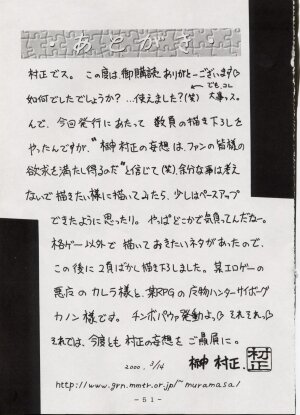 ・あとがき・
村正でス。この度は、御購読ありがと〜ございます♡
でも、コレ
大事っス。
如何でしたでしょうか？…使えました？(笑)
んで、今回発行にあたって 数頁の描き下ろしを
やったんですが、“榊村正の妄想は、ファンの皆様の
欲求を満たし得るのだ”と信じて(笑)、余分な事は考え
ないで描きたい様に描いてみたら、少しはペースアップ
できたように思ったり。やっぱどこかで気負ってんだなー。
格ゲー以外で描いておきたいネタがあったので、
この後に2頁ばかし描き下ろしました。某エロゲーの
悪役のカレラ様と、某RPGの魔物ハンターサイボーグ
カノン様です。チンポパゥァ発動よっ♡ それそれっ♡
それでは、今度とも 村正の妄想を ご贔屓に。
2000. 3/14 榊 村正. 村正
http://www.grn.mmtr.or.jp/~muramasa/
-51-